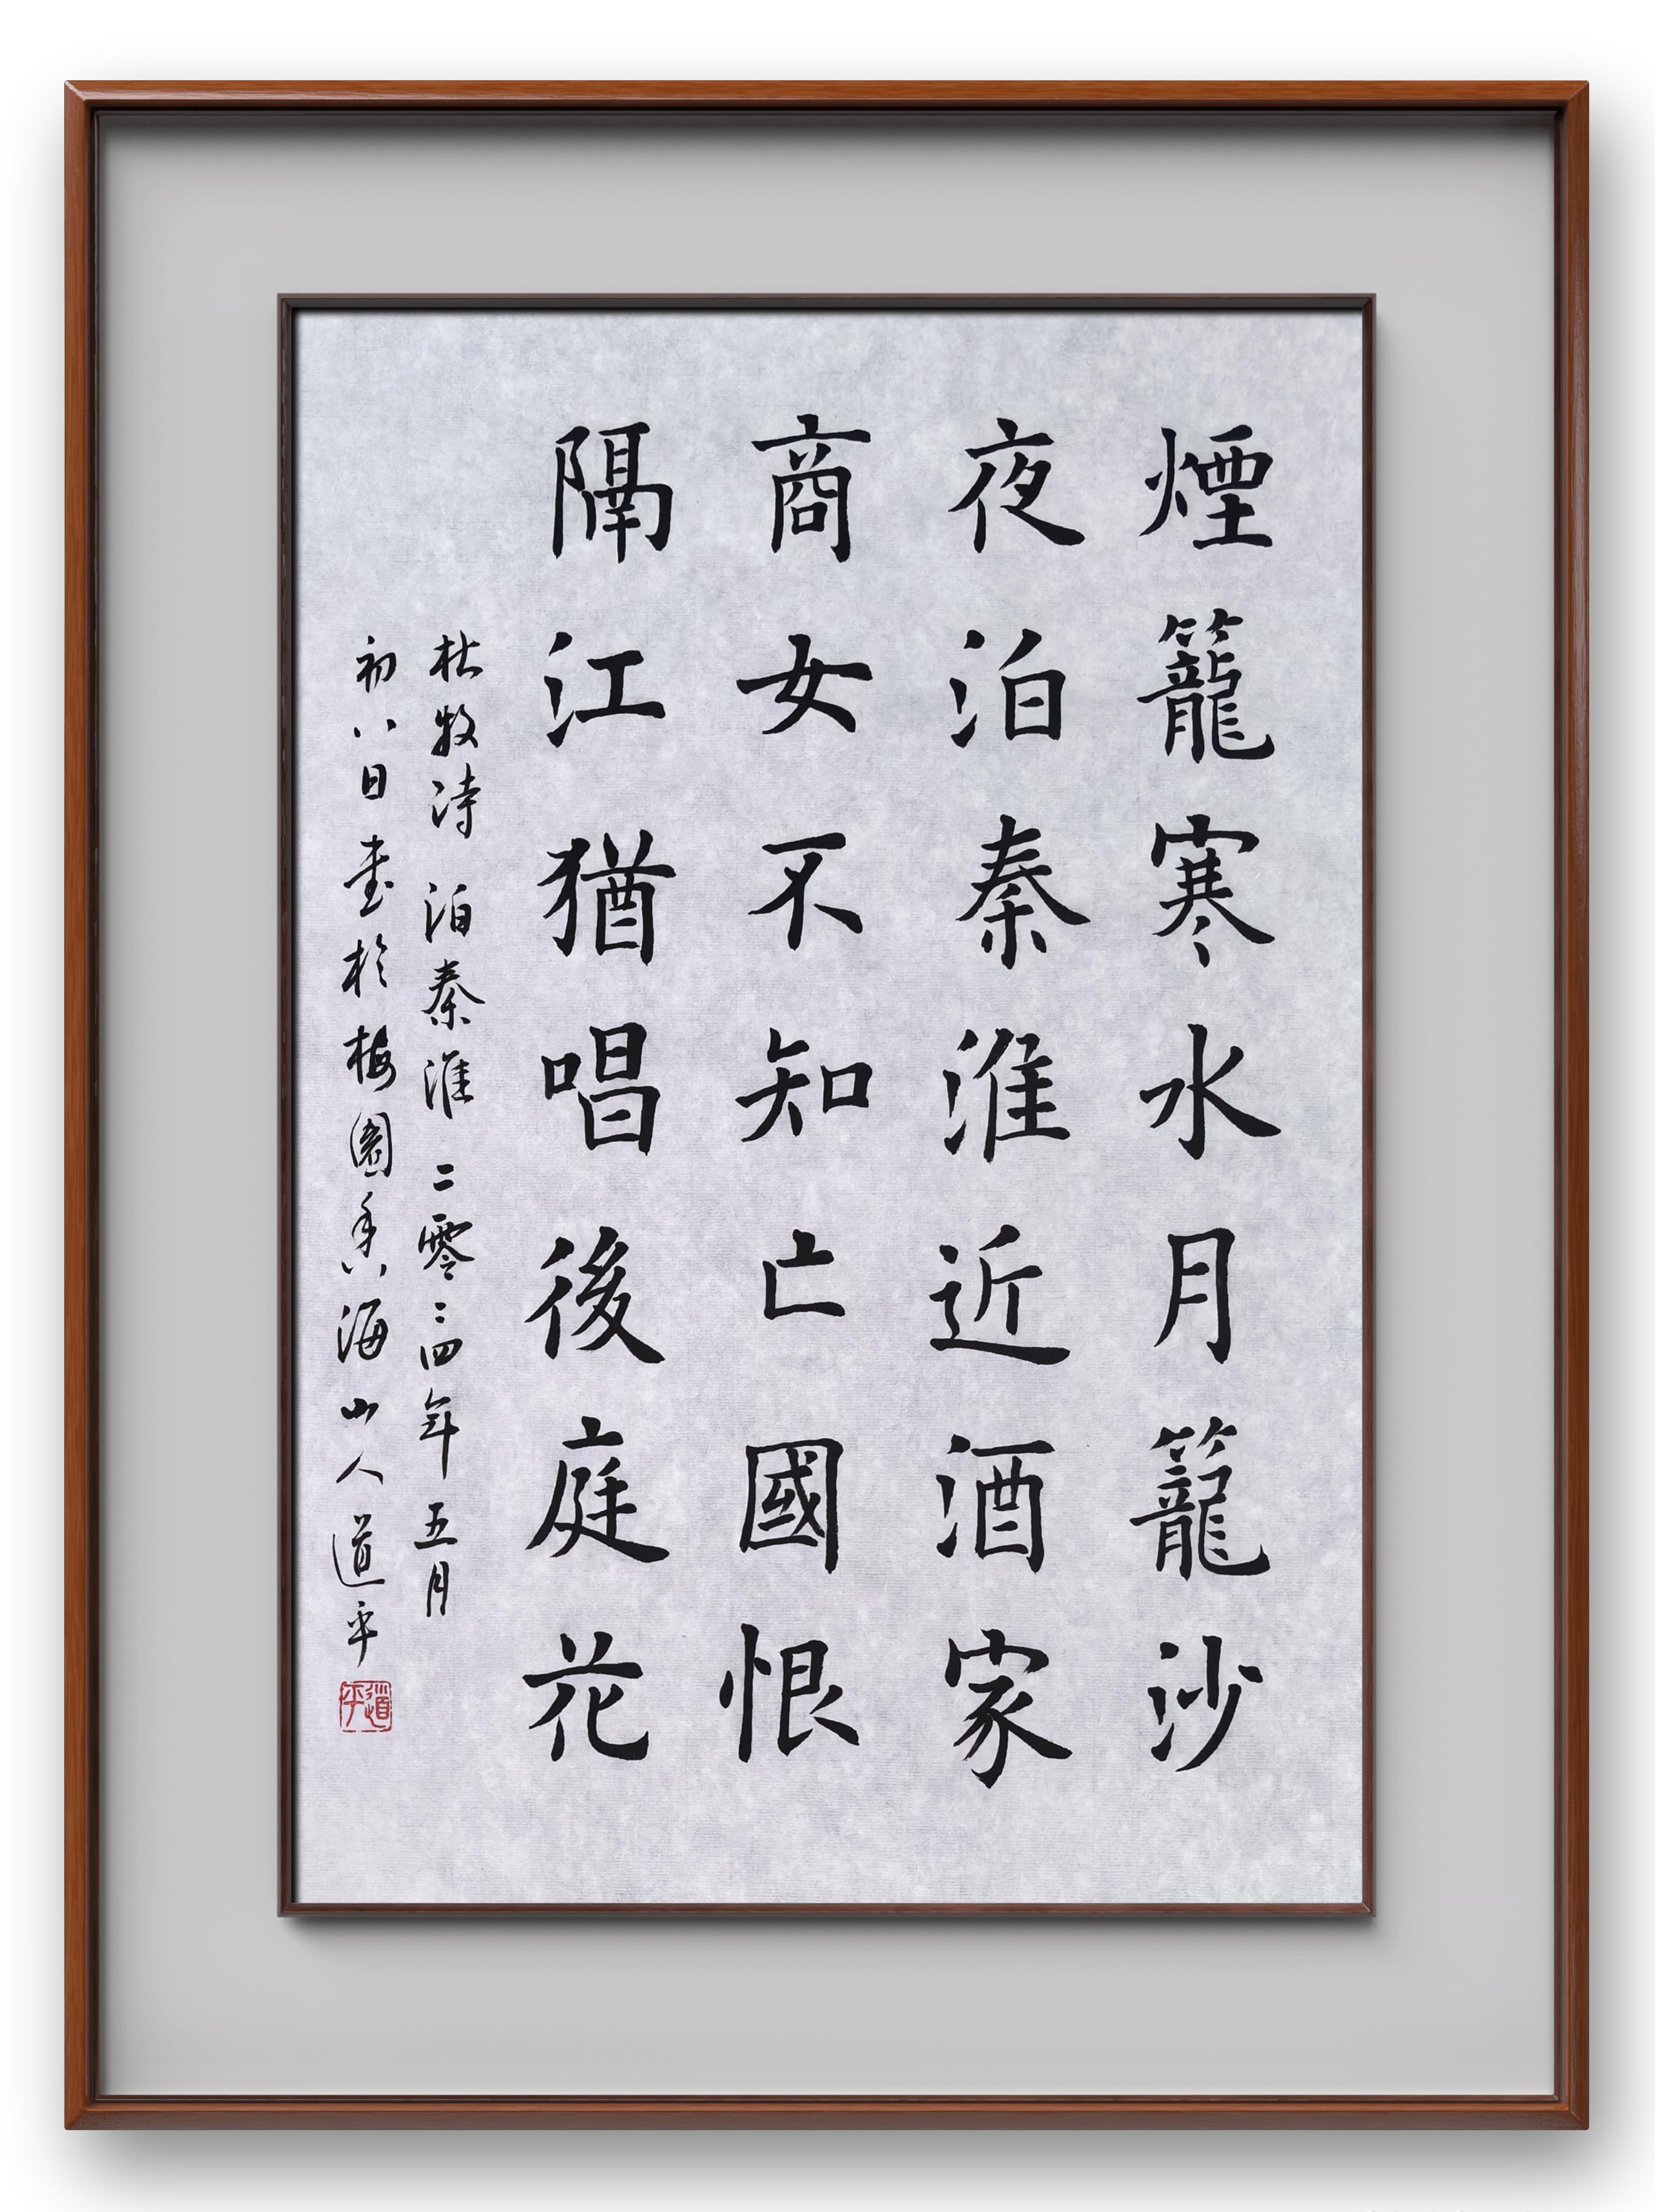 煙籠寒水月籠沙
夜泊秦淮近酒家
商女不知亡國恨
隔江猶唱後庭花
杜牧詩 泊秦淮 二零二四年五月
初八日書於梅園 海山人道平
道平